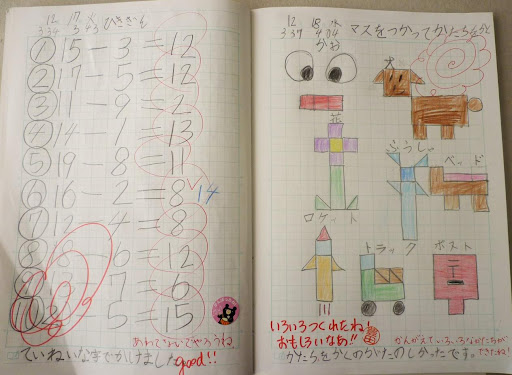 12 17 火 ひきざん
① 15－3＝12
② 17－5＝12
③ 11－9＝2
④ 14－1＝13
⑤ 19－8＝11
⑥ 16－2＝8 14
⑦ 12－4＝8
⑧ 18－6＝12
－7＝6
－5＝15
あわてないでやろうね
ていねいな字でかけました good!!
12 18 水 マスをつかってかたちをかこ
3 39 4 04
かお
犬
花
ふうしゃ
ベッド
ロケット
トラック
ポスト
いろいろつくれたね!
おもしろいなあ!!
かんがえていろいろなかたちが
できたね!
かたちをかくのがたのしかったです。